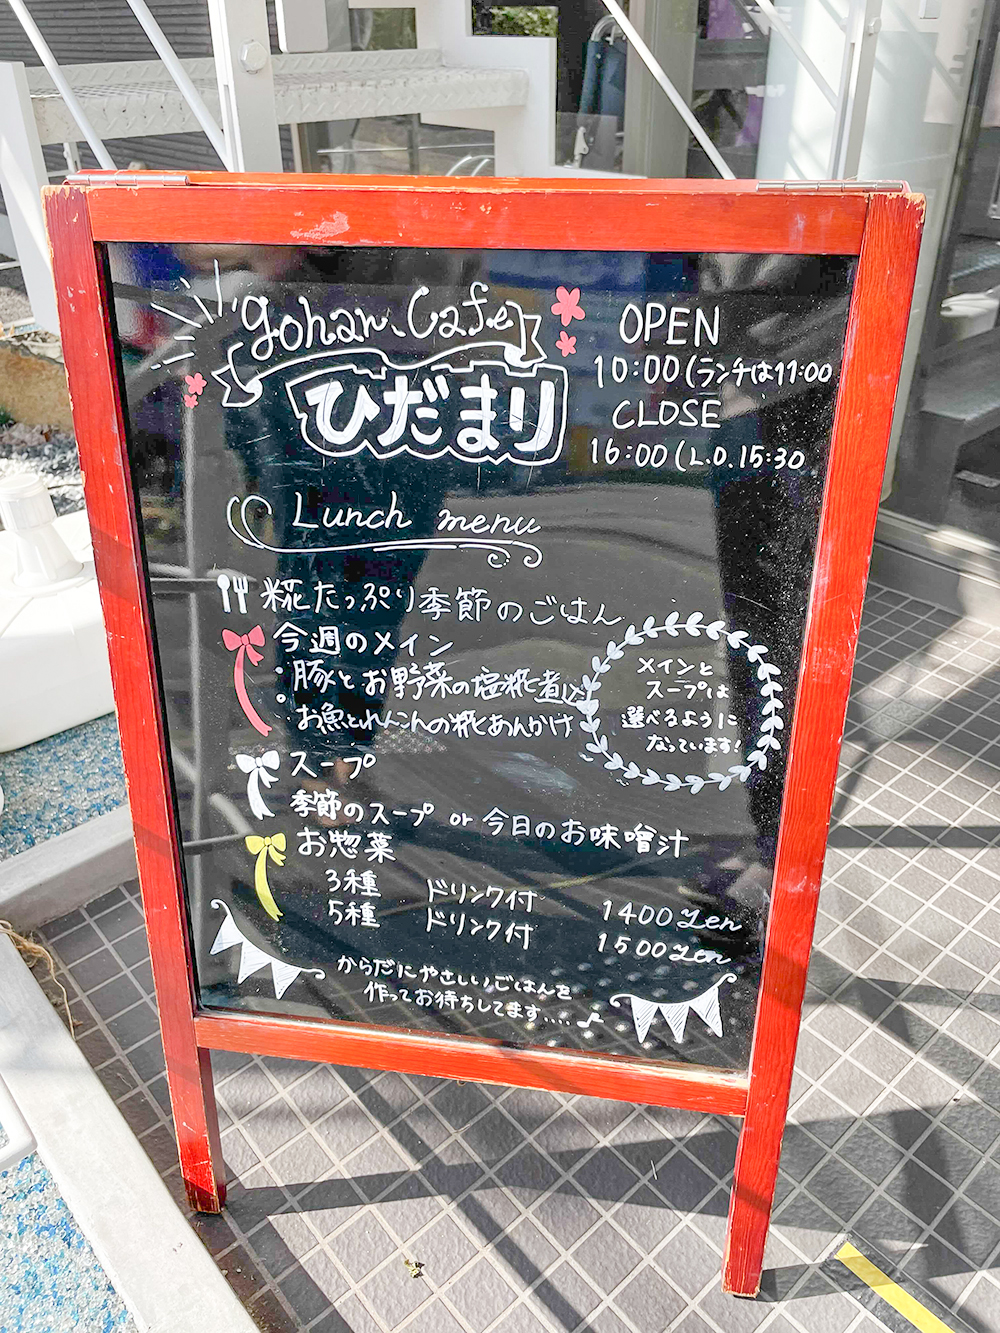 gohan Cafe
ひだまり
OPEN
10:00 (ランチは11:00
CLOSE
16:00 (L.O.15:30
Lunch menu
糀たっぷり季節のごはん
今週のメイン
・豚とお野菜の塩糀煮込
・お魚とれんこんの糀あんかけ
メインと
スープは
選べるように
なっています!
スープ
季節のスープ or 今日のお味噌汁
お惣菜
3種 ドリンク付 1400yen
5種 ドリンク付 1500yen
からだにやさしいごはんを
作ってお待ちしてます....♪